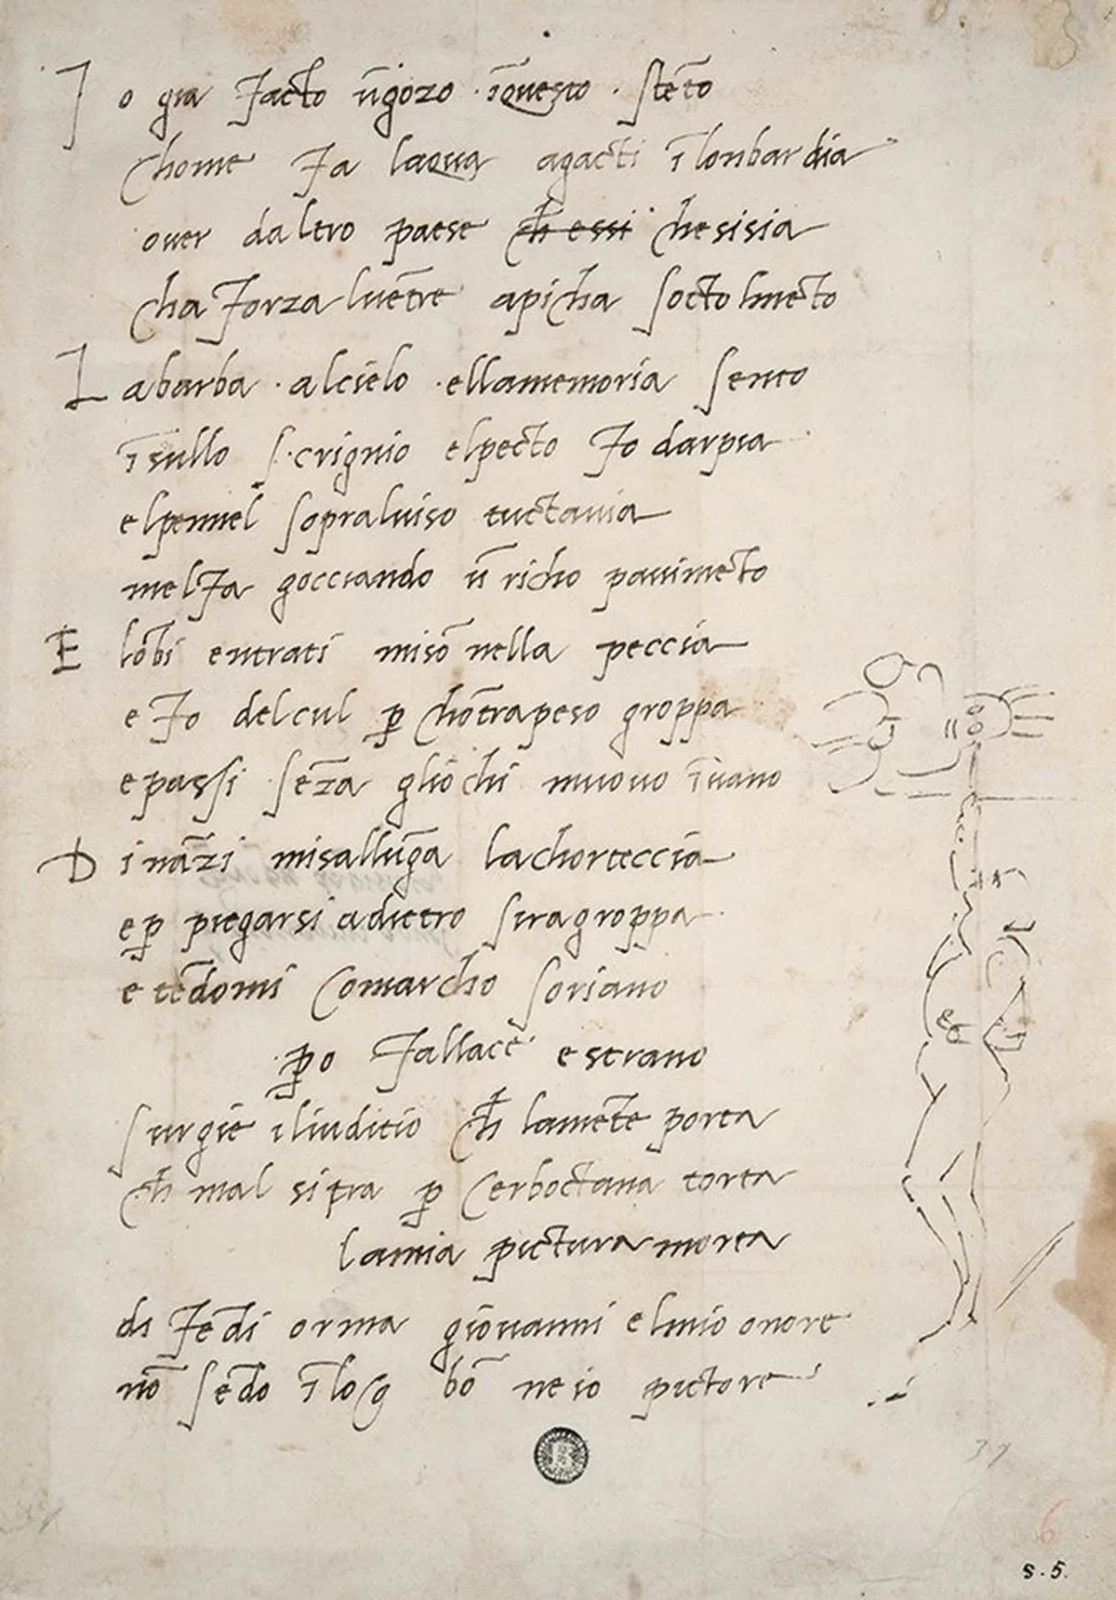 I o gia facto ūgozo īquesto stēto
chome fa laqua agacti ī lonbardia
over daltro paese ch essi chesisia
cha forza luētre apicha socto lmēto
L abarba alcielo ellamemoria sento
īsullo scrignio elpecto fo darpia
elpennel sopraluiso tuctavia
melfa gocciando ū richo pauimēto
E lōbi entrati misō nella peccia
e fo delcul p chōtrapeso groppa
e passi sēza gliochi muouo īuano
D ināzi misallūga lachorteccia
e p piegarsi adietro siragroppa
e tēdomi comarcho soriano
po fallacē e strano
surgie iliuditio ch lamēte porta
ch mal si tra p cerboctana torta
lamia pictura morta
di fēdi orma giovanni elmio onore
nō sēdo ī log bō ne io pictore
37
6
s.5.